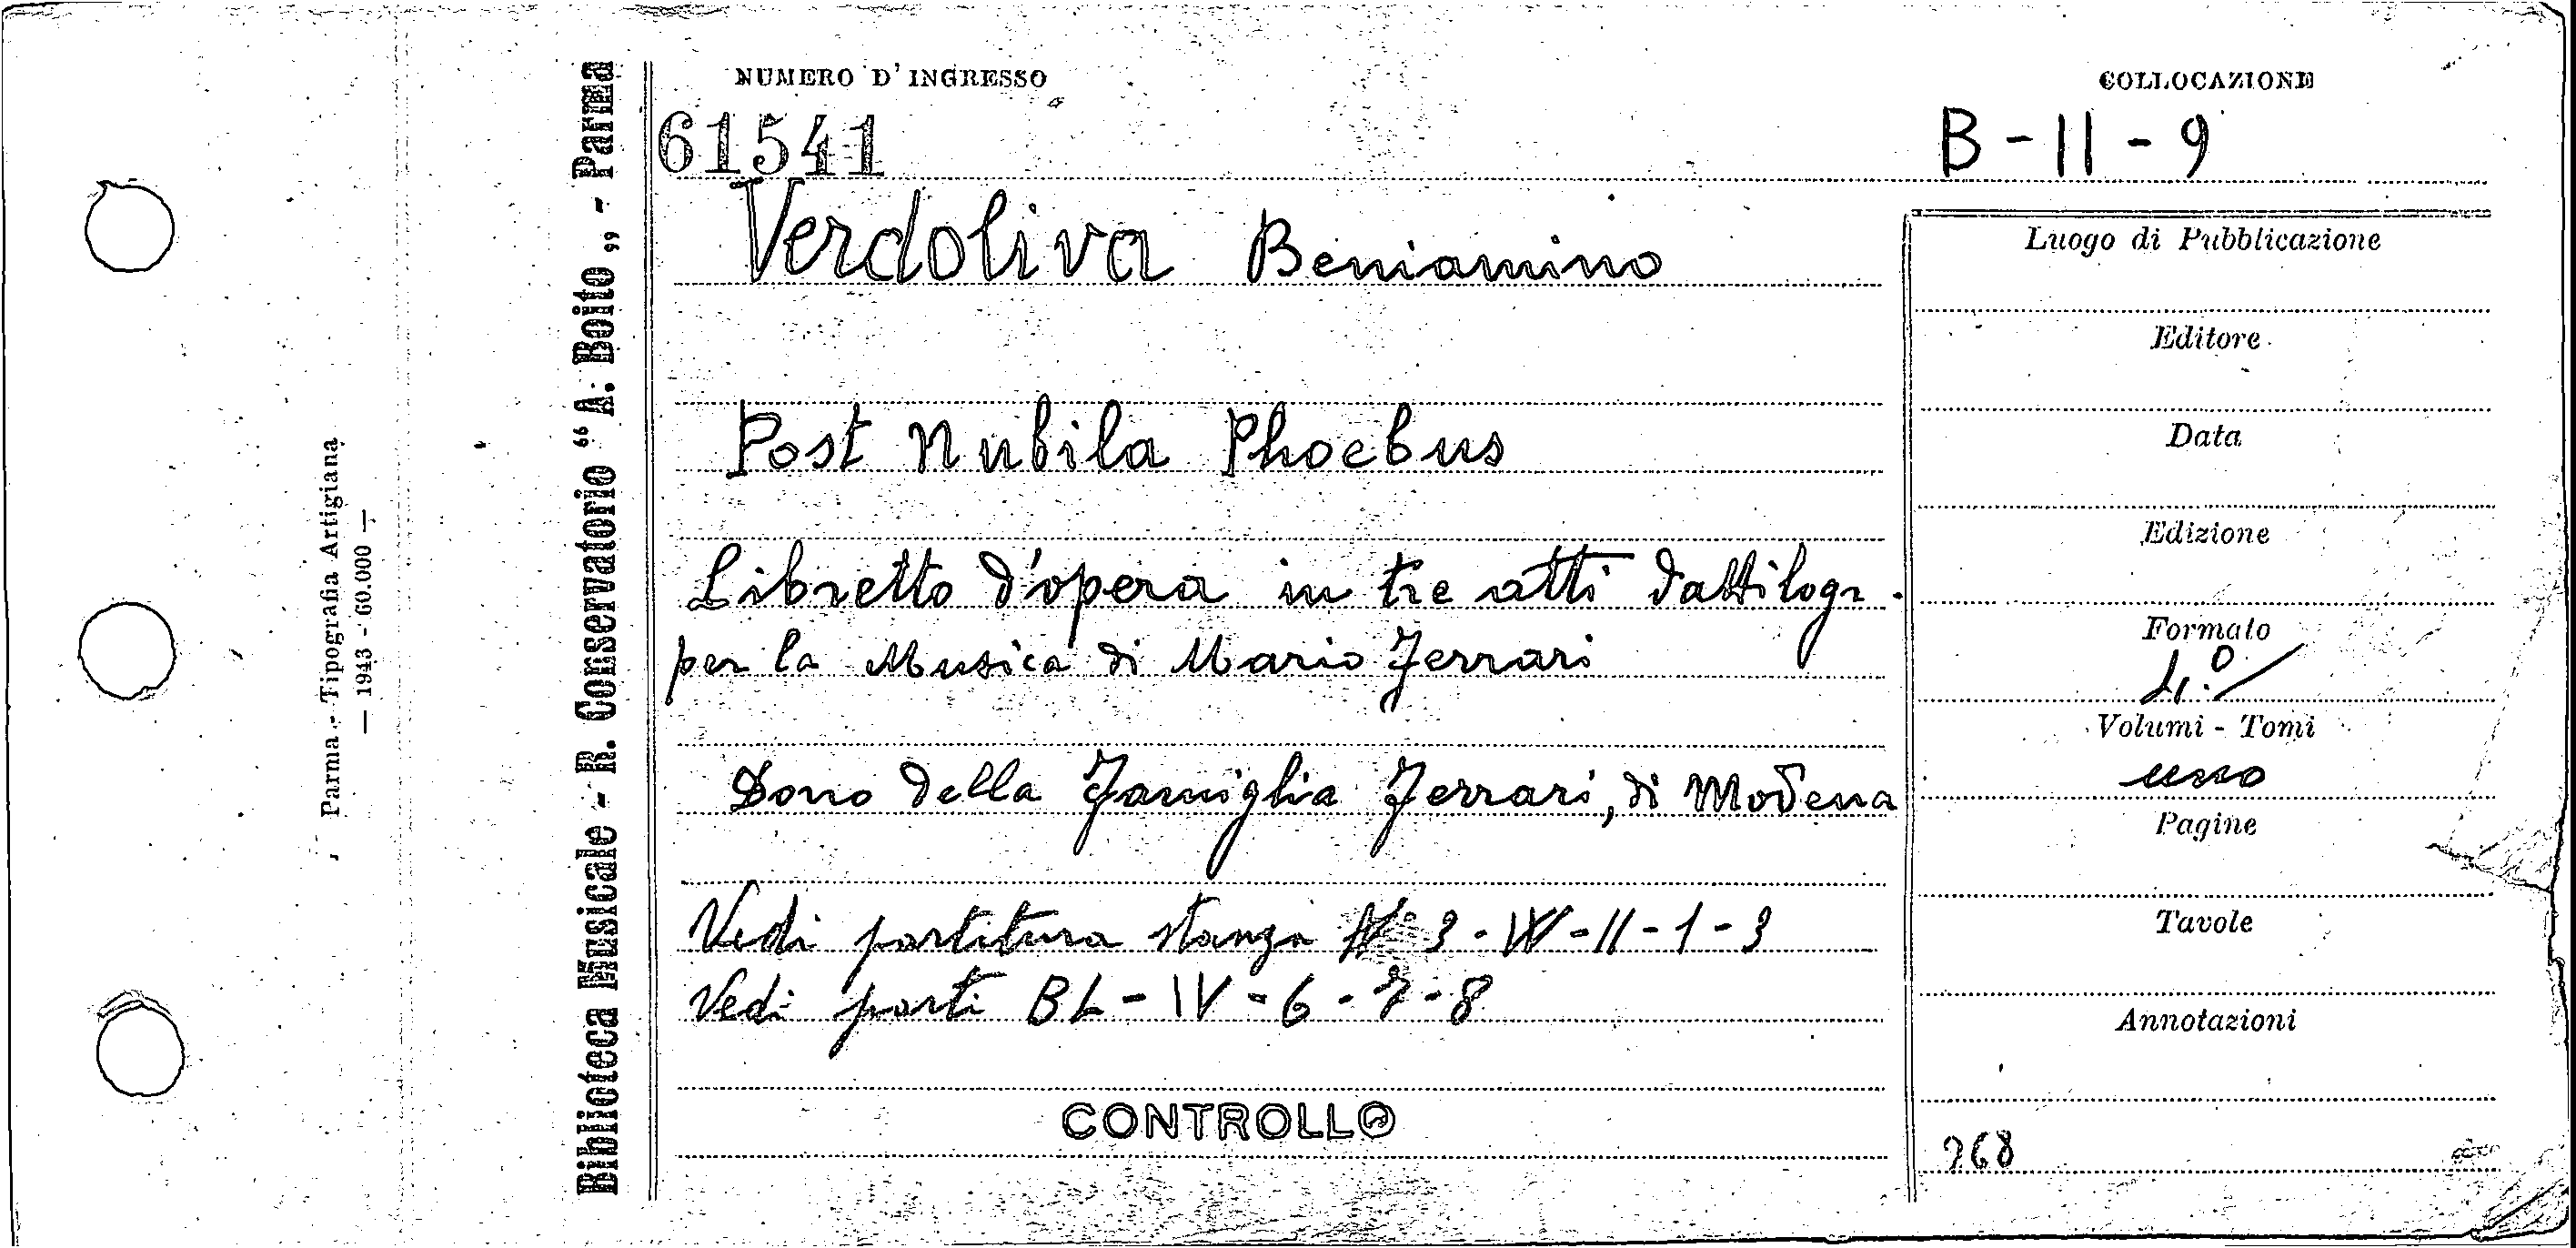 Parma - Tipografia Artigiana
— 1943 - 60.000 —
Biblioteca Musicale - R. Conservatorio “A. Boito„ - Parma
NUMERO D'INGRESSO
61541
COLLOCAZIONE
B - II - 9
Verdoliva Beniamino
Post Nubila Phoebus
Libretto d'opera in tre atti dattilogr.
per la Musica di Mario Ferrari
Dono della Famiglia Ferrari, di Modena
Vedi partitura stanza 3 - W - II - 1 - 3
Vedi parti BL - IV - 6 - 7 - 8
CONTROLLO
Luogo di Pubblicazione
Editore
Data
Edizione
Formato
4.º
Volumi - Tomi
uno
Pagine
Tavole
Annotazioni
268